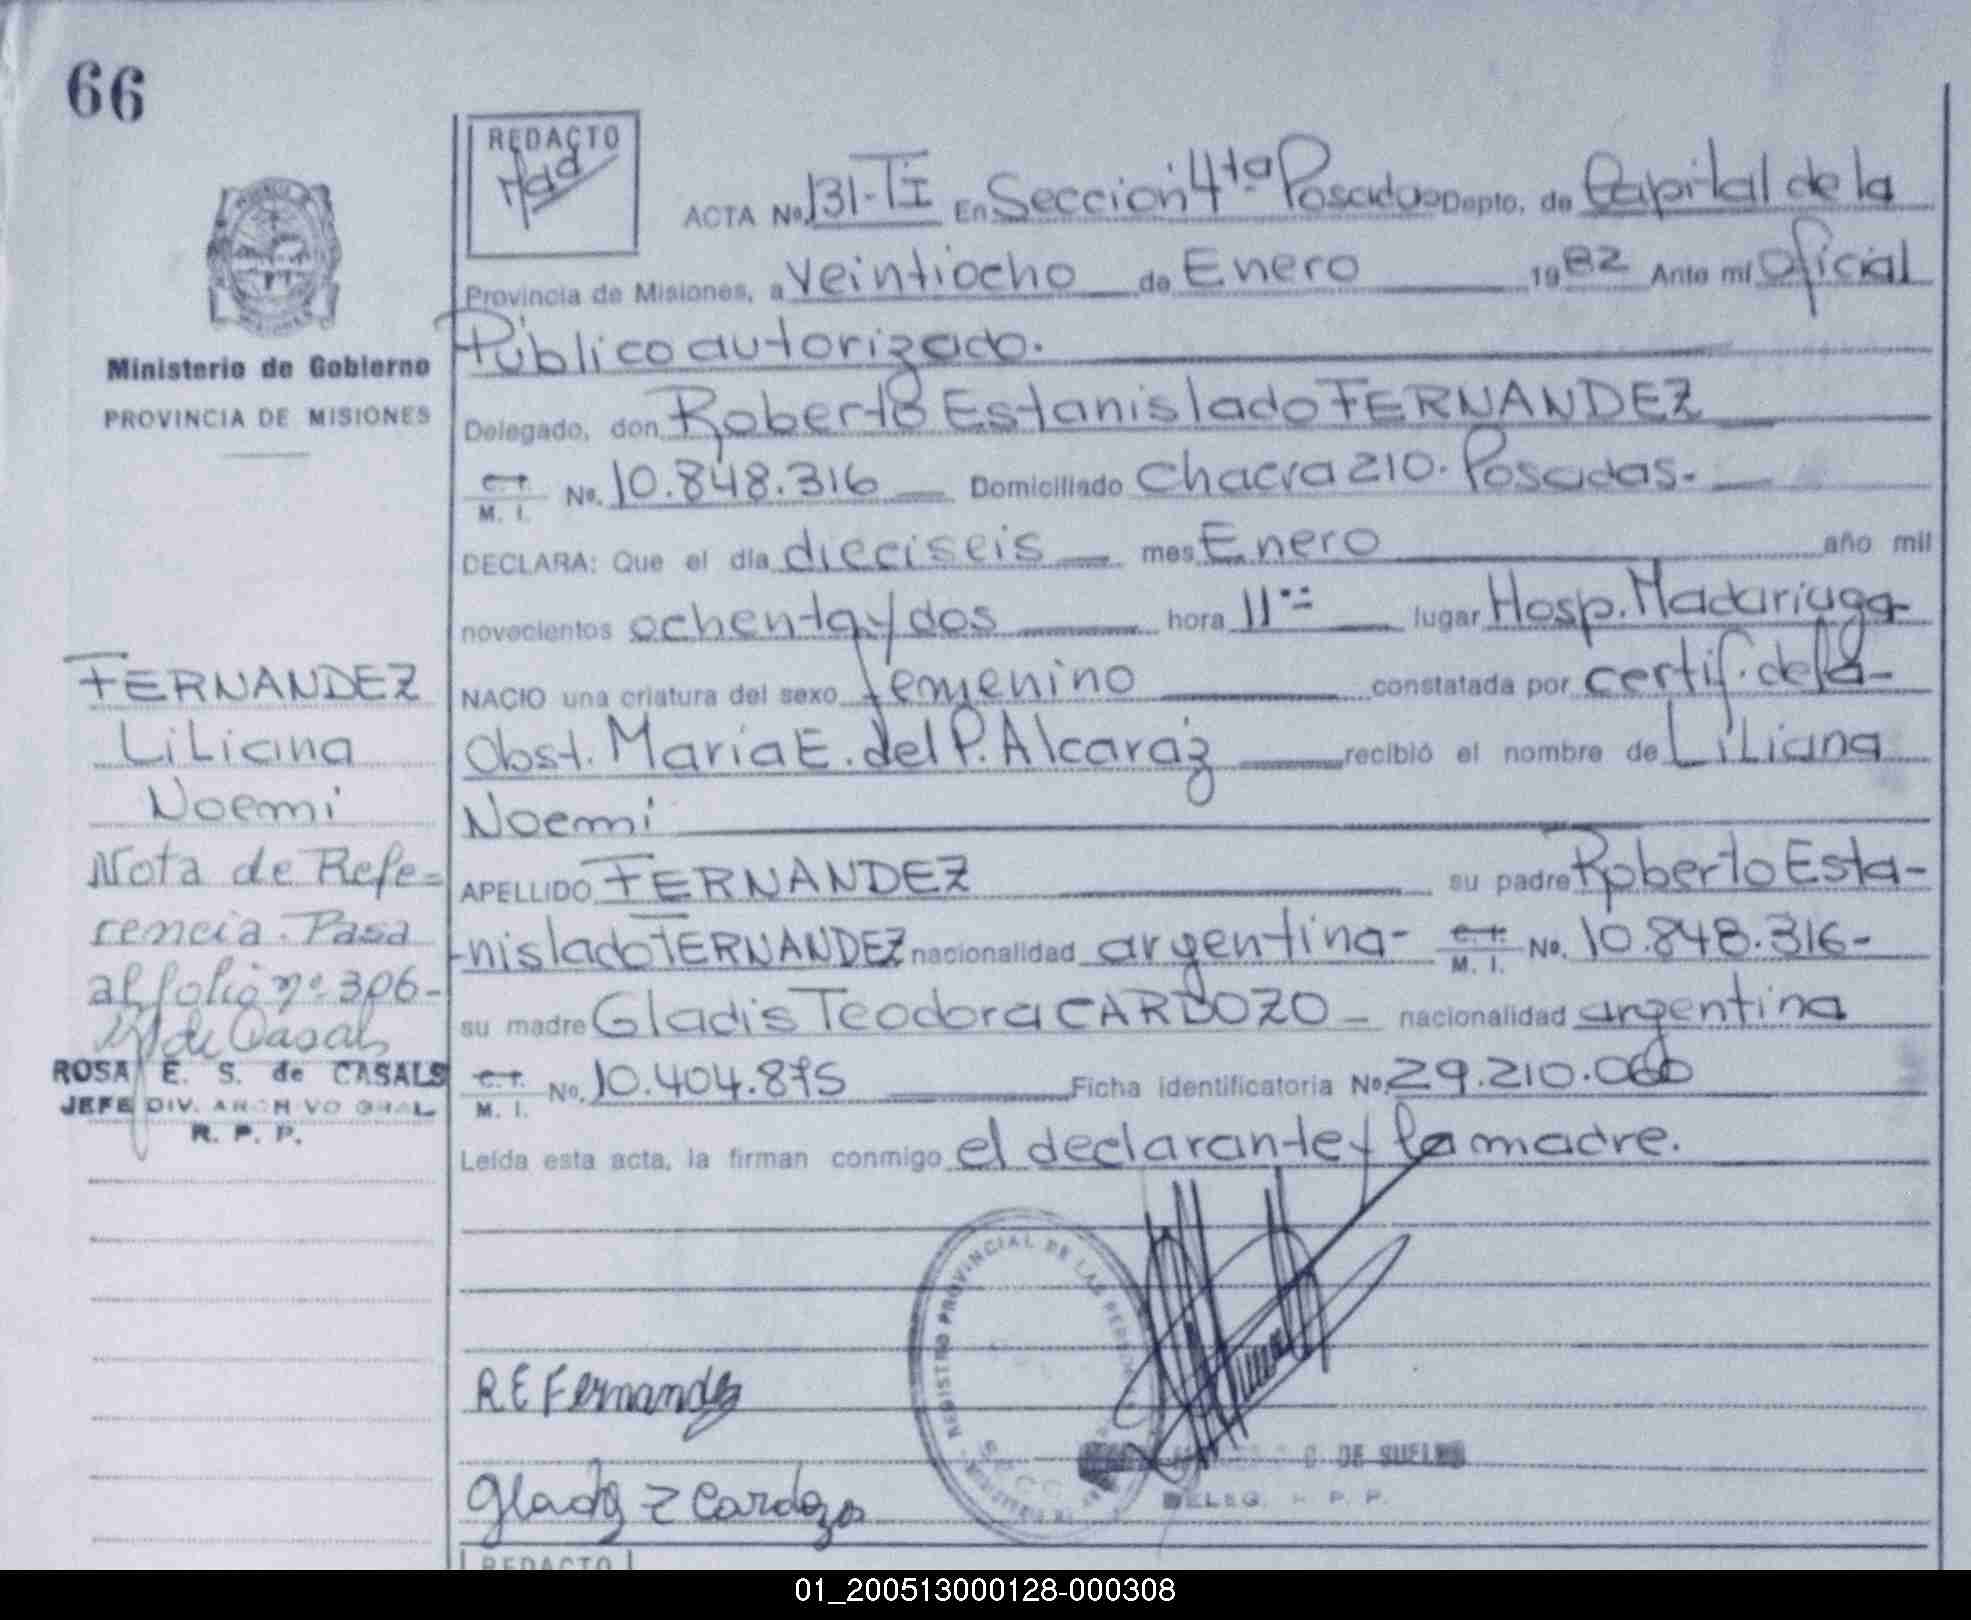 66
REDACTO
ACTA No. 131-TI En Sección 4ta Posadas Depto. de Capital de la
Provincia de Misiones, a veintiocho de Enero 1982 Ante mí Oficial
Público autorizado.
Delegado, don Roberto Estanislado FERNANDEZ
C. I. M. I. No. 10.848.316 Domiciliado Chacra 210. Posadas.
DECLARA: Que el día dieciseis mes Enero año mil
novecientos ochenta y dos hora 11 lugar Hosp. Madariaga
NACIO una criatura del sexo femenino constatada por certif. de la
Obst. Maria E. del P. Alcaraz recibió el nombre de Liliana
Noemi
APELLIDO FERNANDEZ su padre Roberto Esta-
-nislado FERNANDEZ nacionalidad argentina- C. I. M. I. No. 10.848.316-
su madre Gladis Teodora CARDOZO - nacionalidad argentina
C. I. M. I. No. 10.404.875 Ficha identificatoria No. 29.210.060
Leída esta acta, la firman conmigo el declarante y la madre.
Ministerio de Gobierno
PROVINCIA DE MISIONES
FERNANDEZ
Liliana
Noemi
Nota de Refe=
rencia. Pasa
al folio nº 306-
de Casals
ROSA E. S. de CASALS
JEFE DIV. ARCHIVO GRAL
R. P. P.
REGISTRO PROVINCIAL DE LAS
R E Fernandez
DE SUELDO
DELEG. R. P. P.
Gladis T Cardozo
REDACTO
01_200513000128-000308